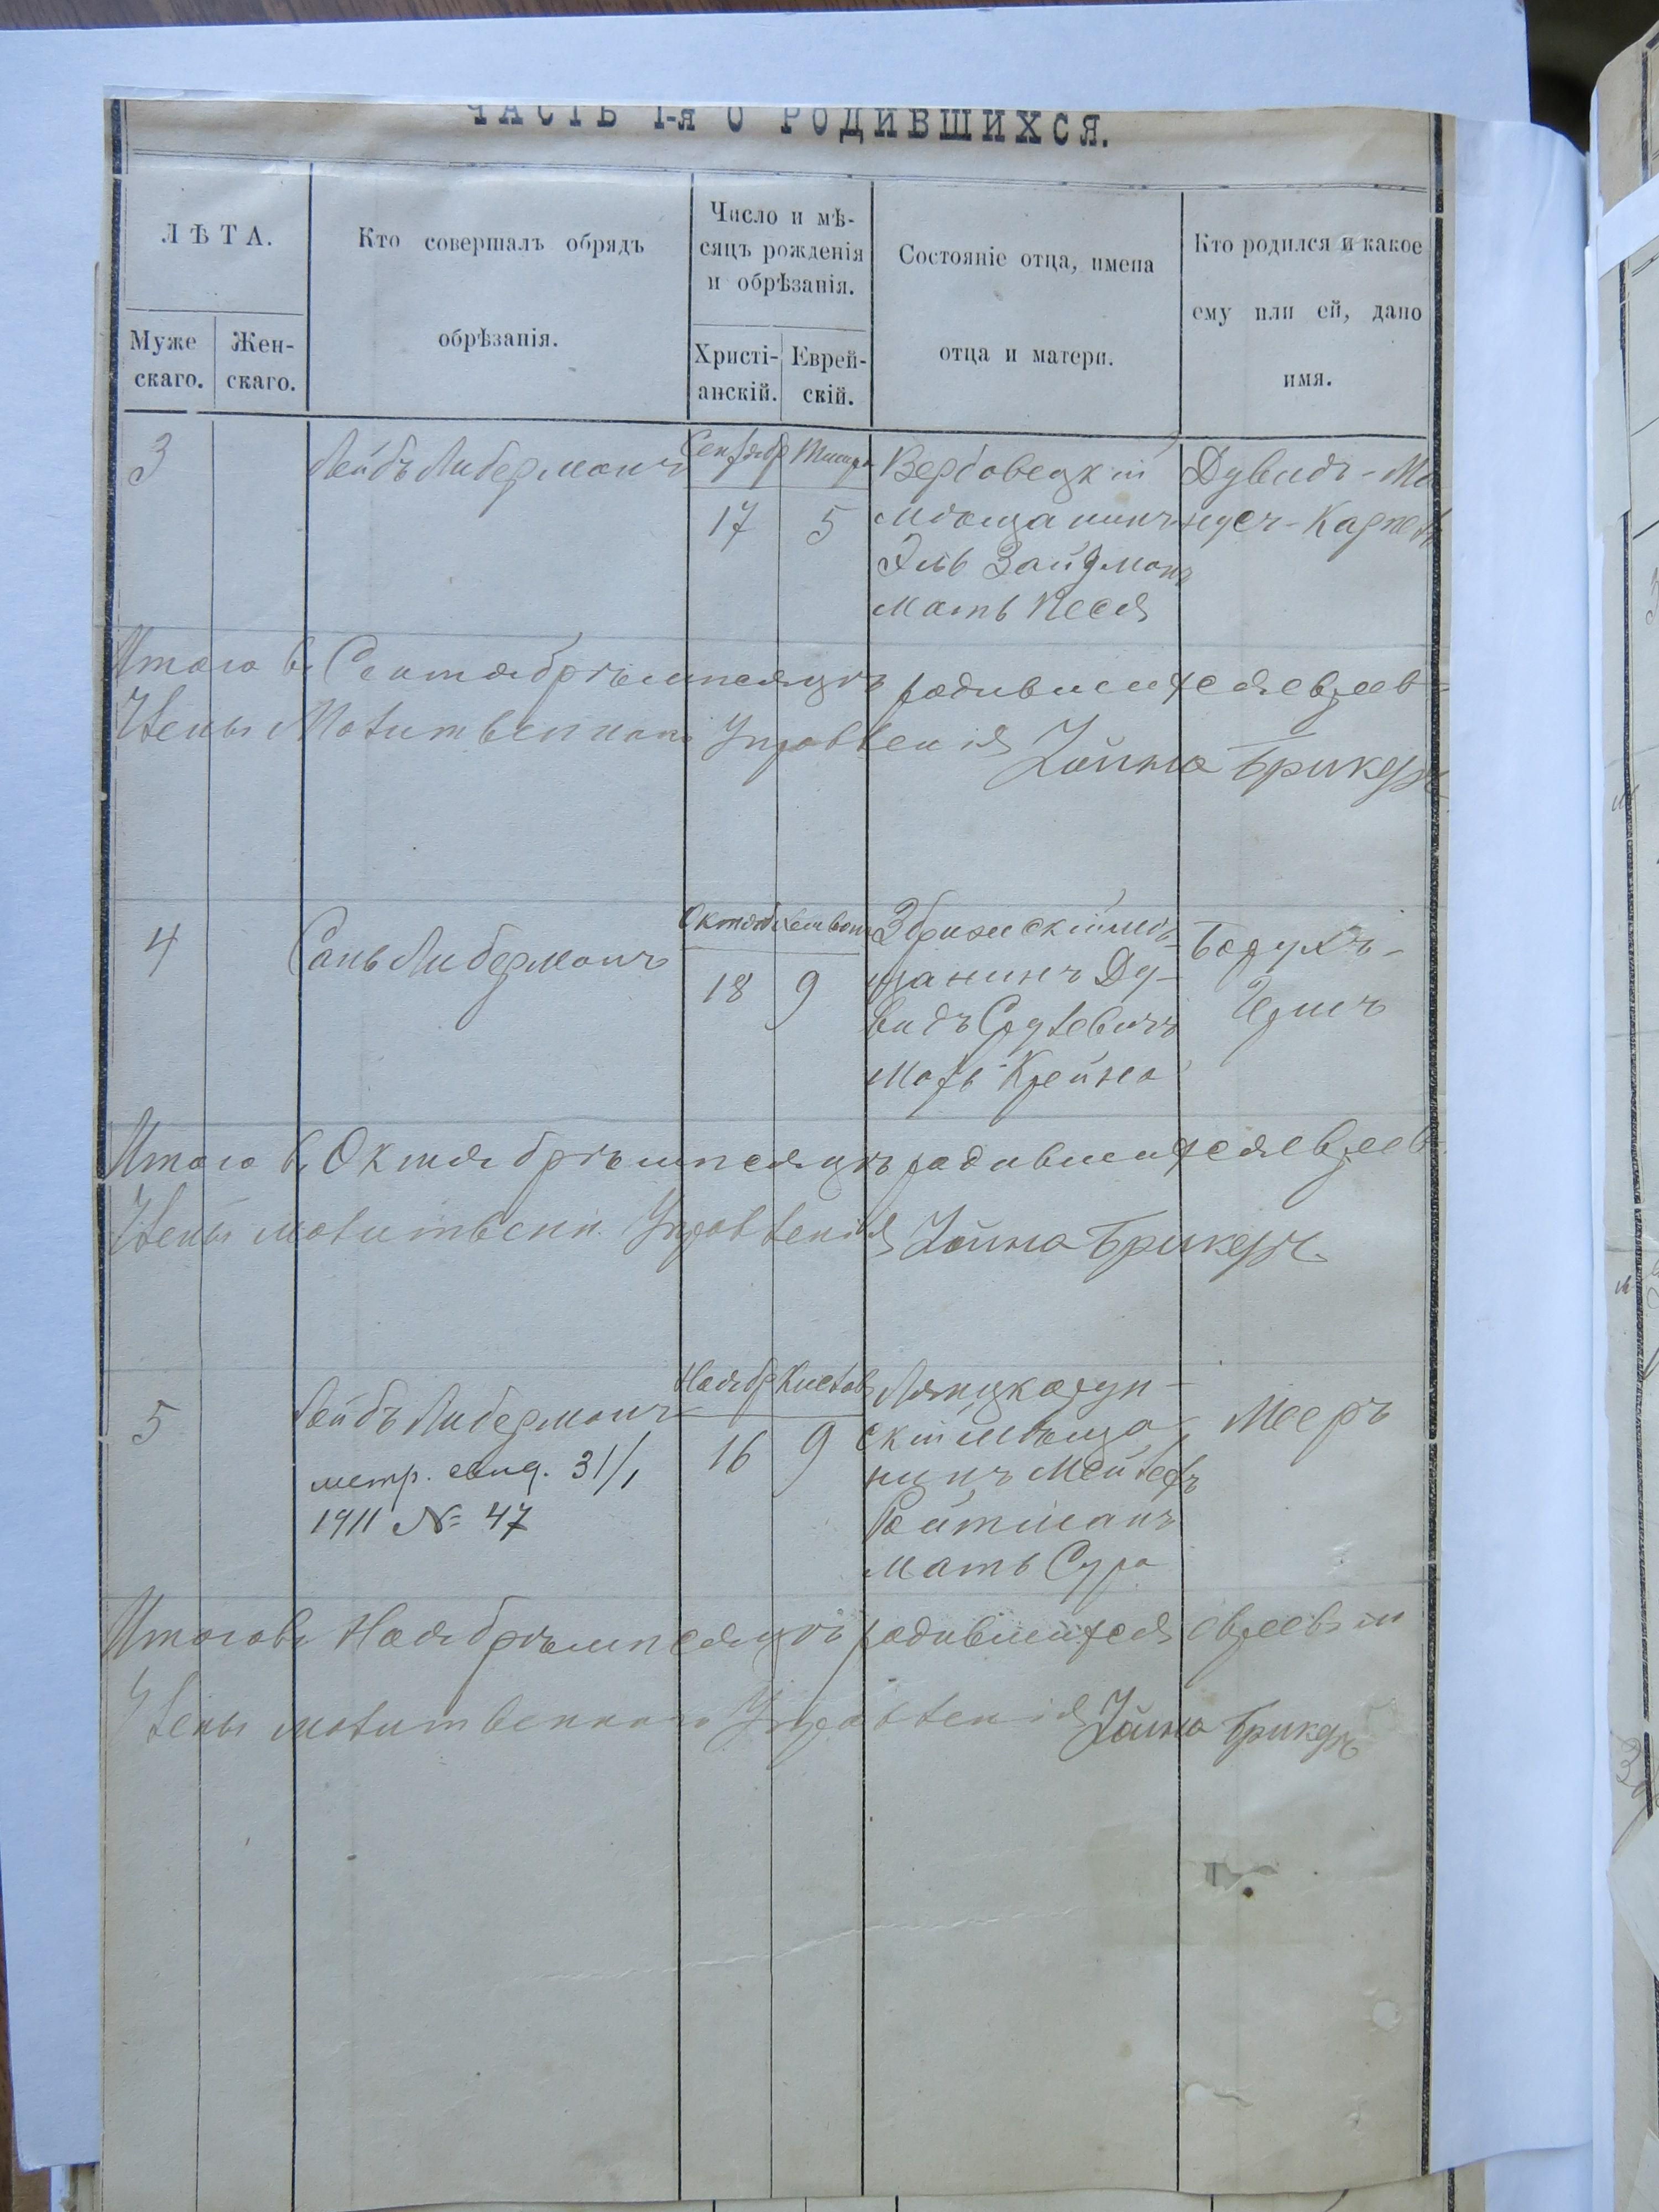 ЧАСТЬ 1-я О РОДИВШИХСЯ.
ЛѢТА.
Муже
скаго.
Жен-
скаго.
Кто совершалъ обрядъ
обрѣзанія.
Число и мѣ-
сяцъ рожденія
и обрѣзанія.
Христі-
анскій.
Еврей-
скій.
Состояніе отца, имена
отца и матери.
Кто родился и какое
ему или ей, дано
имя.
3
Лейбъ Либерманъ
Сентябр
17
5
Вербовецкій
мѣщанинъ
Эль Зайдманъ
мать Песя
Дувидъ-Ма
Итого въ Сентябрѣ мѣсяцѣ родившихся евреев
Члены Молитвеннаго Управленія Хаимъ Брикеръ
4
Либерманъ
Октяб
18
9
щанинъ Ду-
видъ
Мать Крейна
Борухъ-
Итого въ Октябрѣ мѣсяцѣ родившихся евреев
Члены молитвенн. Управленія Хаимъ Брикеръ
5
Лейбъ Либерманъ
метр. свид. 31/1
1911 № 47
Ноябр
16
9
скій мѣща
нинъ
Ройтманъ
мать Сура
Мееръ
Итого въ Ноябрѣ мѣсяцѣ родившихся евреевъ
Члены молитвеннаго Управленія Хаимъ Брикеръ